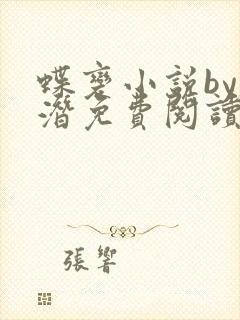 蝶裦小说by
潛免費閱讀
張響